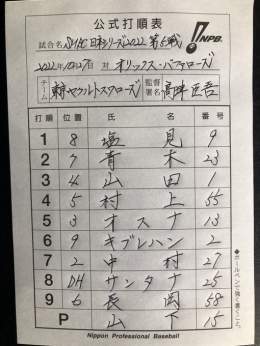 公式打順表
試合名 SMBC日本シリーズ2022 第5戦
NPB
2022年10月27日 対 オリックス・バファローズ
チーム 東京ヤクルトスワローズ 監督署名 高津臣吾
打順 位置 氏名 番号
1 8 塩見 9
2 7 青木 23
3 4 山田 1
4 5 村上 55
5 3 オスナ 13
6 9 キブレハン 2
7 2 中村 27
8 DH サンタナ 25
9 6 長岡 58
P 山下 15
◆ボールペンで強く書くこと。
Nippon Professional Baseball